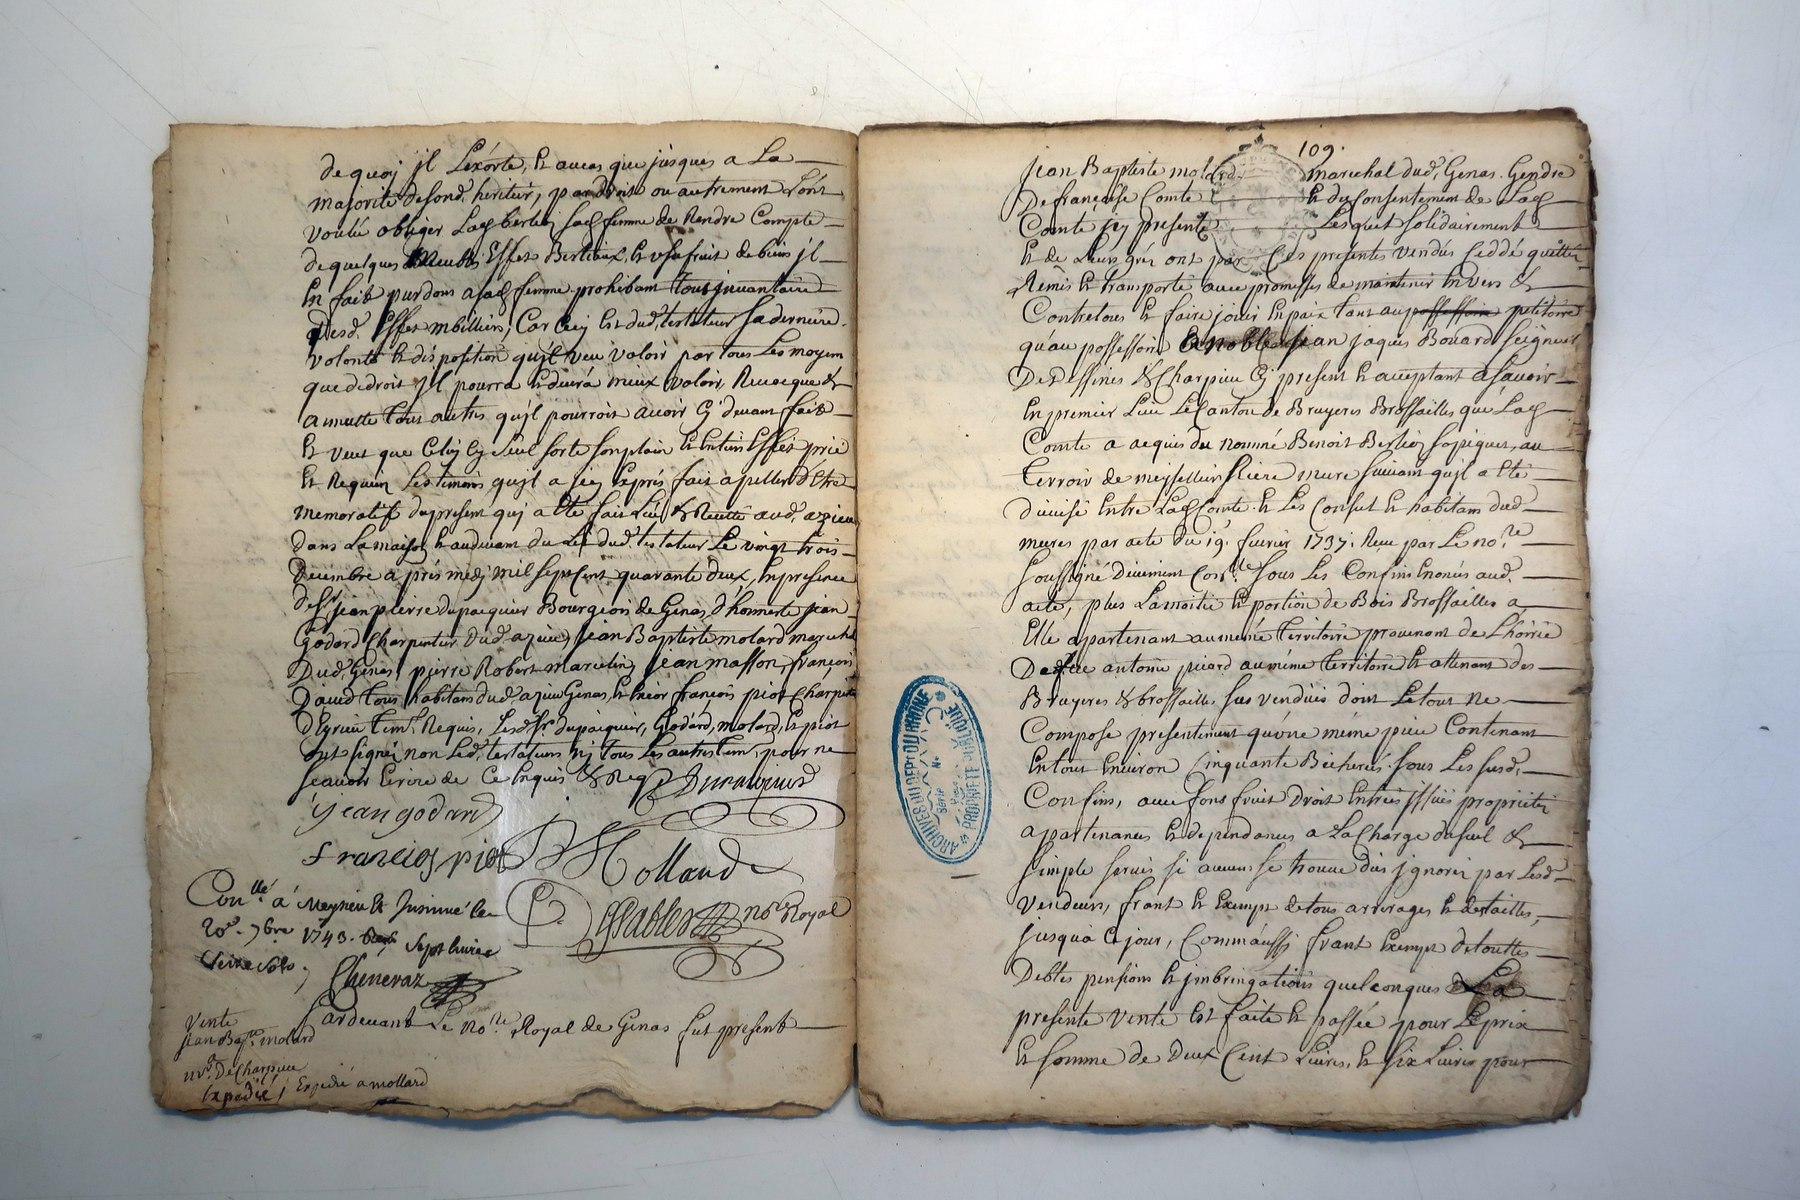 de quoy jl Lexorte, et aucas que jusques a La
majorité desond. heritier, par droit ou autrement L'ont
voulu obliger Lad. bertier sad. femme de Rendre Compte
de quelques Meubles Effets Bestiaux, et usufruit de biens jl
En fait pur don a sad. femme prohibant tous jnvantaire
desd. Effets mbilliers, Car Cecy Est dud. testateur sa derniere
volonté et disposition qu'jl veu valoir par tous Les moyens
que de droit jl pourra et devra mieux valoir, Revocque &
annulle tous autres qu'jl pourroit avoir cy devant fait
Et veut que Celuy cy seul sorte son plain et Entier Effet prié
Et Requis Les temoins qu'jl a jcy Exprés fait apeller d'Etre
memoratifs du present qui a Eté fait Lu & Recitté aud. azieu
dans La maison et au devant du Lit dud. testateur Le vingt trois
Decembre aprés medy mil sept cent quarante deux, En presence
de sr. jean pierre dupacquier Bourgeois de Genas, d'honneste jean
Godard Charpentier dud. azieu, jean Baptiste molard marechal
Dud. Genas, pierre Robert marcelin, jean masson, françois
David tous habitans dud. azieu Genas, et sieor françois piot Charpt
d'Eyrieu tem. Requis, Lesd. sr. dupacquier, Godard, molard, et piot
ont signé non Led. testateur nj tous Les autres tem. pour ne
scavoir Ecrire de Ce Enquis & Req.
Dupacquier
jean godard
francios piot
B Mollard
Desables no.re Royal
Con.llé à Meyzieu Et Insinué le
20e. 7bre 1743. Reçu Sept livres
Seize Sols ;
Cheneraz
Pardevant Le no.re Royal de Genas fut present
vente
jean Bap.te molard
mr. De Charpieu
Expedié / Expedié a mollard
109.
jean Baptiste molard marechal dud. Genas. Gendre
De françoise Comte et du Consentement de Lad.
Comte jcy presente Lesquels solidairement
Et de Leurs gréz ont par Ces presentes vendus Ceddé quitté
Remis et transporté avec promesses de maintenir Envers &
Contre tous et faire jouir En paix tant au possessoire petitoire
qu'au possessoire A noble jean jaques Bouard seigneur
De Dessines & Charpieu Cy present et acceptant a sçavoir
En premier Lieu Le Canton de Bruyeres Brossailles que Lad.
Comte a acquis du nommé Benoit Bertier sapiquet, au
terroir de meissellieu sliere mure suivant qu'jl a Eté
divisé Entre Lad. Comte et Les Consul et habitans dud.
mures par acte du 19. fevrier 1737. Reçu par Le no.re
soussigné Düement Con.llé sous Les Confins Enoncés aud.
acte, plus La moitié et portion de Bois Brossailles a
Elle apartenant au même territoire provenant de L'hoirie
De feue antoine picard au même territoire et attenant des
Bruyeres & brossailles sus venduës dont Le tout ne
Compose presentement qu'une même piece Contenant
En tout Environ Cinquante Bicherées sous Les susd.
Confins, avec fons fruis Droit Entrées Issües proprietés
apartenances et dependances a La Charge du seul &
simple servis si aucun se trouve düs jgnorés par Lesd.
vendeurs, franc et Exempt de tous arrerages et de tailles,
jusqu'a Ce jour, Comm'aussi franc Exempt de touttes
Debtes pensions et jmbringations quelconques La
presente vente Est faite et passée pour Le prix
Et somme de Deux Cent Livres, et six Livres pour
ARCHIVES DU DEPt DU RHONE
Série
No
PROPRIETE PUBLIQUE